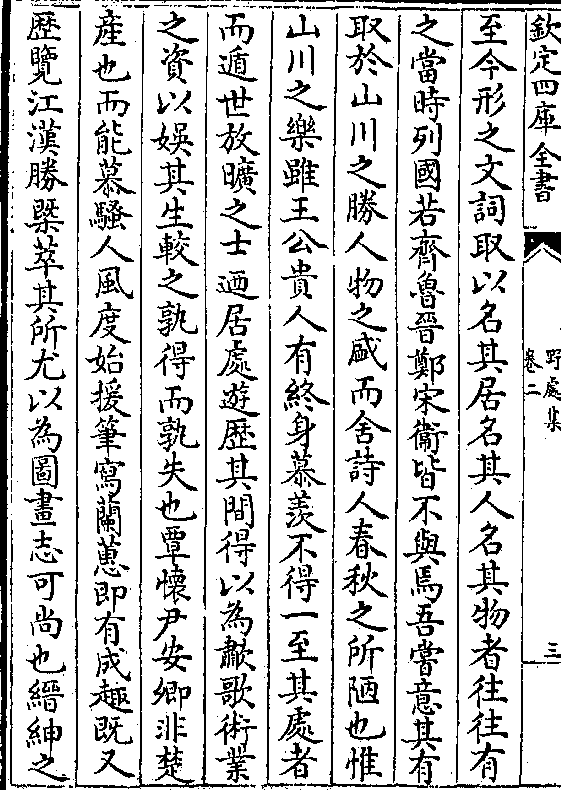 欽定四庫全書
野處集
卷二
三
至今形之文詞取以名其居名其人名其物者往往有
之當時列國若齊魯晉鄭宋衞皆不與焉吾嘗意其有
取於山川之勝人物之盛而舍詩人春秋之所陋也惟
山川之樂雖王公貴人有終身慕羨不得一至其處者
而遁世放曠之士迺居處遊歷其間得以為歗歌術業
之資以娱其生較之孰得而孰失也覃懷尹安卿非楚
產也而能慕騷人風度始援筆寫蘭蕙即有成趣既又
歴覽江漢勝槩萃其所尤以為圖畫志可尚也縉紳之